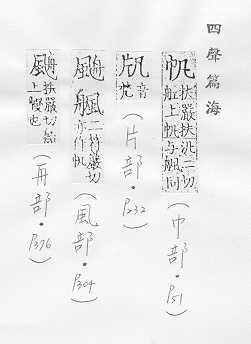 四聲篇海
帆 扶嚴扶泛二切
船上帆与同
（巾部．P51）
音
（片部．P232）
二符嚴切
亦作帆
（風部．P304）
扶嚴切船
上幔也
（舟部．P376）